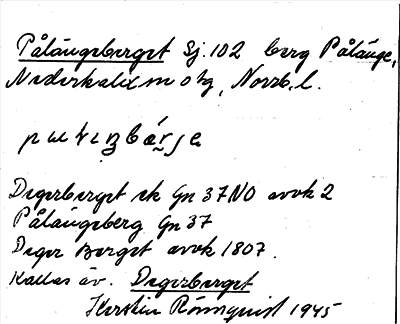 Pålängeberget Sj. 102 berg Pålänge,
Nederkalix sn o tg, Norrb. l.
Degerberget ek Gn 37NO avvk 2
Pålängeberg Gn 37
Deger Berget avvk 1807.
Kallas äv. Degerberget
Kerstin Rönnquist 1945